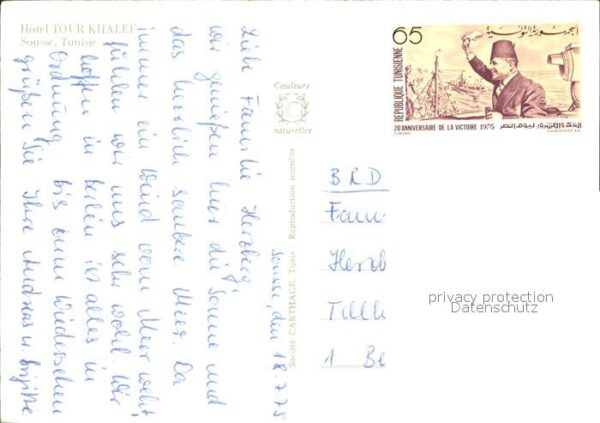 Hôtel TOUR KHALEF
Sousse, Tunisie
Sousse, den 18.7.75
Liebe Familie Herzberg,
wir genießen hier die Sonne und
das herrlich saubere Meer. Da
immer ein Wind vom Meer weht,
fühlen wir uns sehr wohl. Wir
hoffen in Berlin ist alles in
Ordnung. Bis zum Wiedersehen
grüßen Sie Ihre Andreas u. Brigitte
Couleurs
naturelles
Société CARTHAGE Tunis Reproduction interdite
65
الجمهورية التونسية
REPUBLIQUE TUNISIENNE
20e ANNIVERSAIRE DE LA VICTOIRE 1975
BRD
Fam
Herzb
Tillh
1 Be
privacy protection
Datenschutz